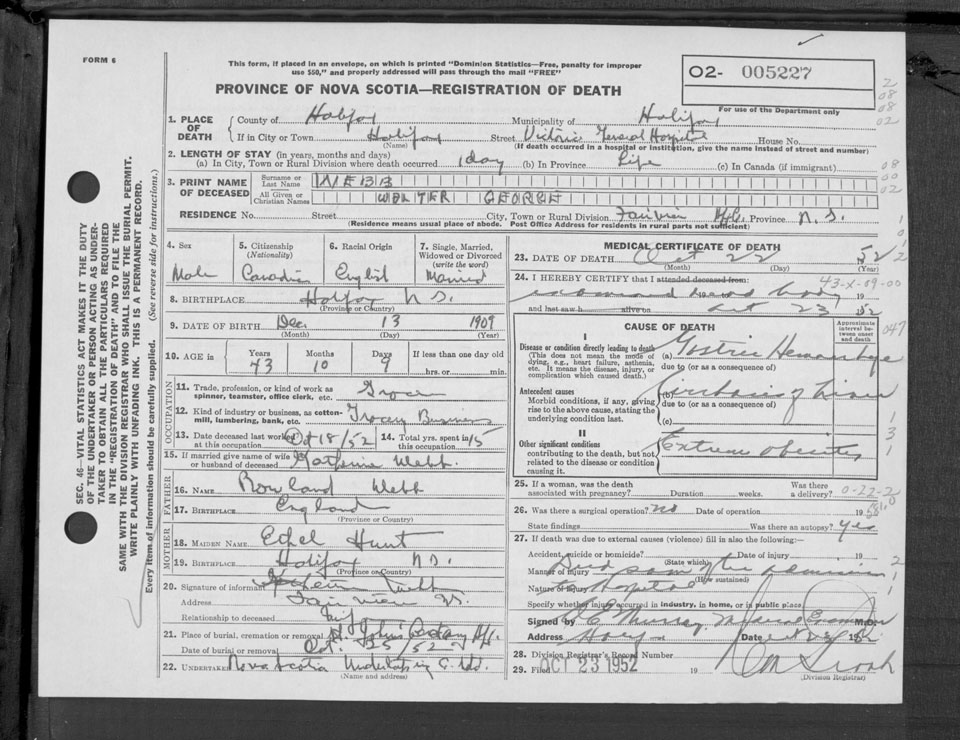 FORM 6
This form, if placed in an envelope, on which is printed "Dominion Statistics—Free, penalty for improper
use $50," and properly addressed will pass through the mail "FREE"
PROVINCE OF NOVA SCOTIA—REGISTRATION OF DEATH
O2- 005227
For use of the Department only
1. PLACE OF DEATH
County of Halifax Municipality of Halifax
If in City or Town Halifax Street Victoria General Hospital House No.
(Name) (If death occurred in a hospital or institution, give the name instead of street and number)
2. LENGTH OF STAY (in years, months and days)
(a) In City, Town or Rural Division where death occurred 1 day (b) In Province Life (c) In Canada (if immigrant)
3. PRINT NAME OF DECEASED
Surname or Last Name WEBB
All Given or Christian Names WALTER GEORGE
RESIDENCE No. Street City, Town or Rural Division Fairview Hfx. Province N.S.
(Residence means usual place of abode. Post Office Address for residents in rural parts not sufficient)
4. Sex Male
5. Citizenship (Nationality) Canadian
6. Racial Origin English
7. Single, Married, Widowed or Divorced (write the word) Married
8. BIRTHPLACE Halifax N.S.
(Province or Country)
9. DATE OF BIRTH Dec. 13 1909
(Month) (Day) (Year)
10. AGE in Years 43 Months 10 Days 9 If less than one day old
hrs. or min.
OCCUPATION
11. Trade, profession, or kind of work as spinner, teamster, office clerk, etc. Grocer
12. Kind of industry or business, as cotton-mill, lumbering, bank, etc. Grocery Business
13. Date deceased last worked at this occupation Oct 18/52 14. Total yrs. spent in this occupation 15
15. If married give name of wife or husband of deceased Katherine Webb.
FATHER
16. NAME Rowland Webb
17. BIRTHPLACE England
(Province or Country)
MOTHER
18. MAIDEN NAME Ethel Hunt
19. BIRTHPLACE Halifax N.S.
(Province or Country)
20. Signature of informant Webb
Address Fairview N.S.
Relationship to deceased Wife
21. Place of burial, cremation or removal St. John's Cemetery Hfx.
Date of burial or removal Oct. 25/52
22. UNDERTAKER Nova Scotia Undertaking Co. Ltd.
(Name and address)
MEDICAL CERTIFICATE OF DEATH
23. DATE OF DEATH Oct 22 52
(Month) (Day) (Year)
24. I HEREBY CERTIFY that I attended deceased from:
43-X-09-00
examined body 19
and last saw h alive on Oct 23 1952
CAUSE OF DEATH
Approximate interval between onset and death
I
Disease or condition directly leading to death
(This does not mean the mode of dying, e.g., heart failure, asthenia, etc. It means the disease, injury, or complication which caused death.)
(a) Gastric Hemorrhage
due to (or as a consequence of)
Antecedent causes
Morbid conditions, if any, giving rise to the above cause, stating the underlying condition last.
(b) Cirrhosis of Liver
due to (or as a consequence of)
(c)
II
Other significant conditions
contributing to the death, but not related to the disease or condition causing it.
Extreme Obesity
25. If a woman, was the death associated with pregnancy? Duration weeks. Was there a delivery?
26. Was there a surgical operation? No Date of operation 19
State findings Was there an autopsy? Yes
27. If death was due to external causes (violence) fill in also the following:—
Accident, suicide or homicide? Date of injury 19
(State which)
Manner of injury Died soon after admission
(How sustained)
Nature of injury to Hospital
Specify whether injury occurred in industry, in home, or in public place
Signed by Murray Medical Examiner M.D.
Address Date 1952
28. Division Registrar's Record Number
29. Filed OCT 23 1952 19
(Division Registrar)
SEC. 46—VITAL STATISTICS ACT MAKES IT THE DUTY
OF THE UNDERTAKER OR PERSON ACTING AS UNDER-
TAKER TO OBTAIN ALL THE PARTICULARS REQUIRED
IN THE "REGISTRATION OF DEATH" AND TO FILE THE
SAME WITH THE DIVISION REGISTRAR WHO SHALL ISSUE THE BURIAL PERMIT.
WRITE PLAINLY WITH UNFADING INK. THIS IS A PERMANENT RECORD.
Every item of information should be carefully supplied. (See reverse side for instructions.)